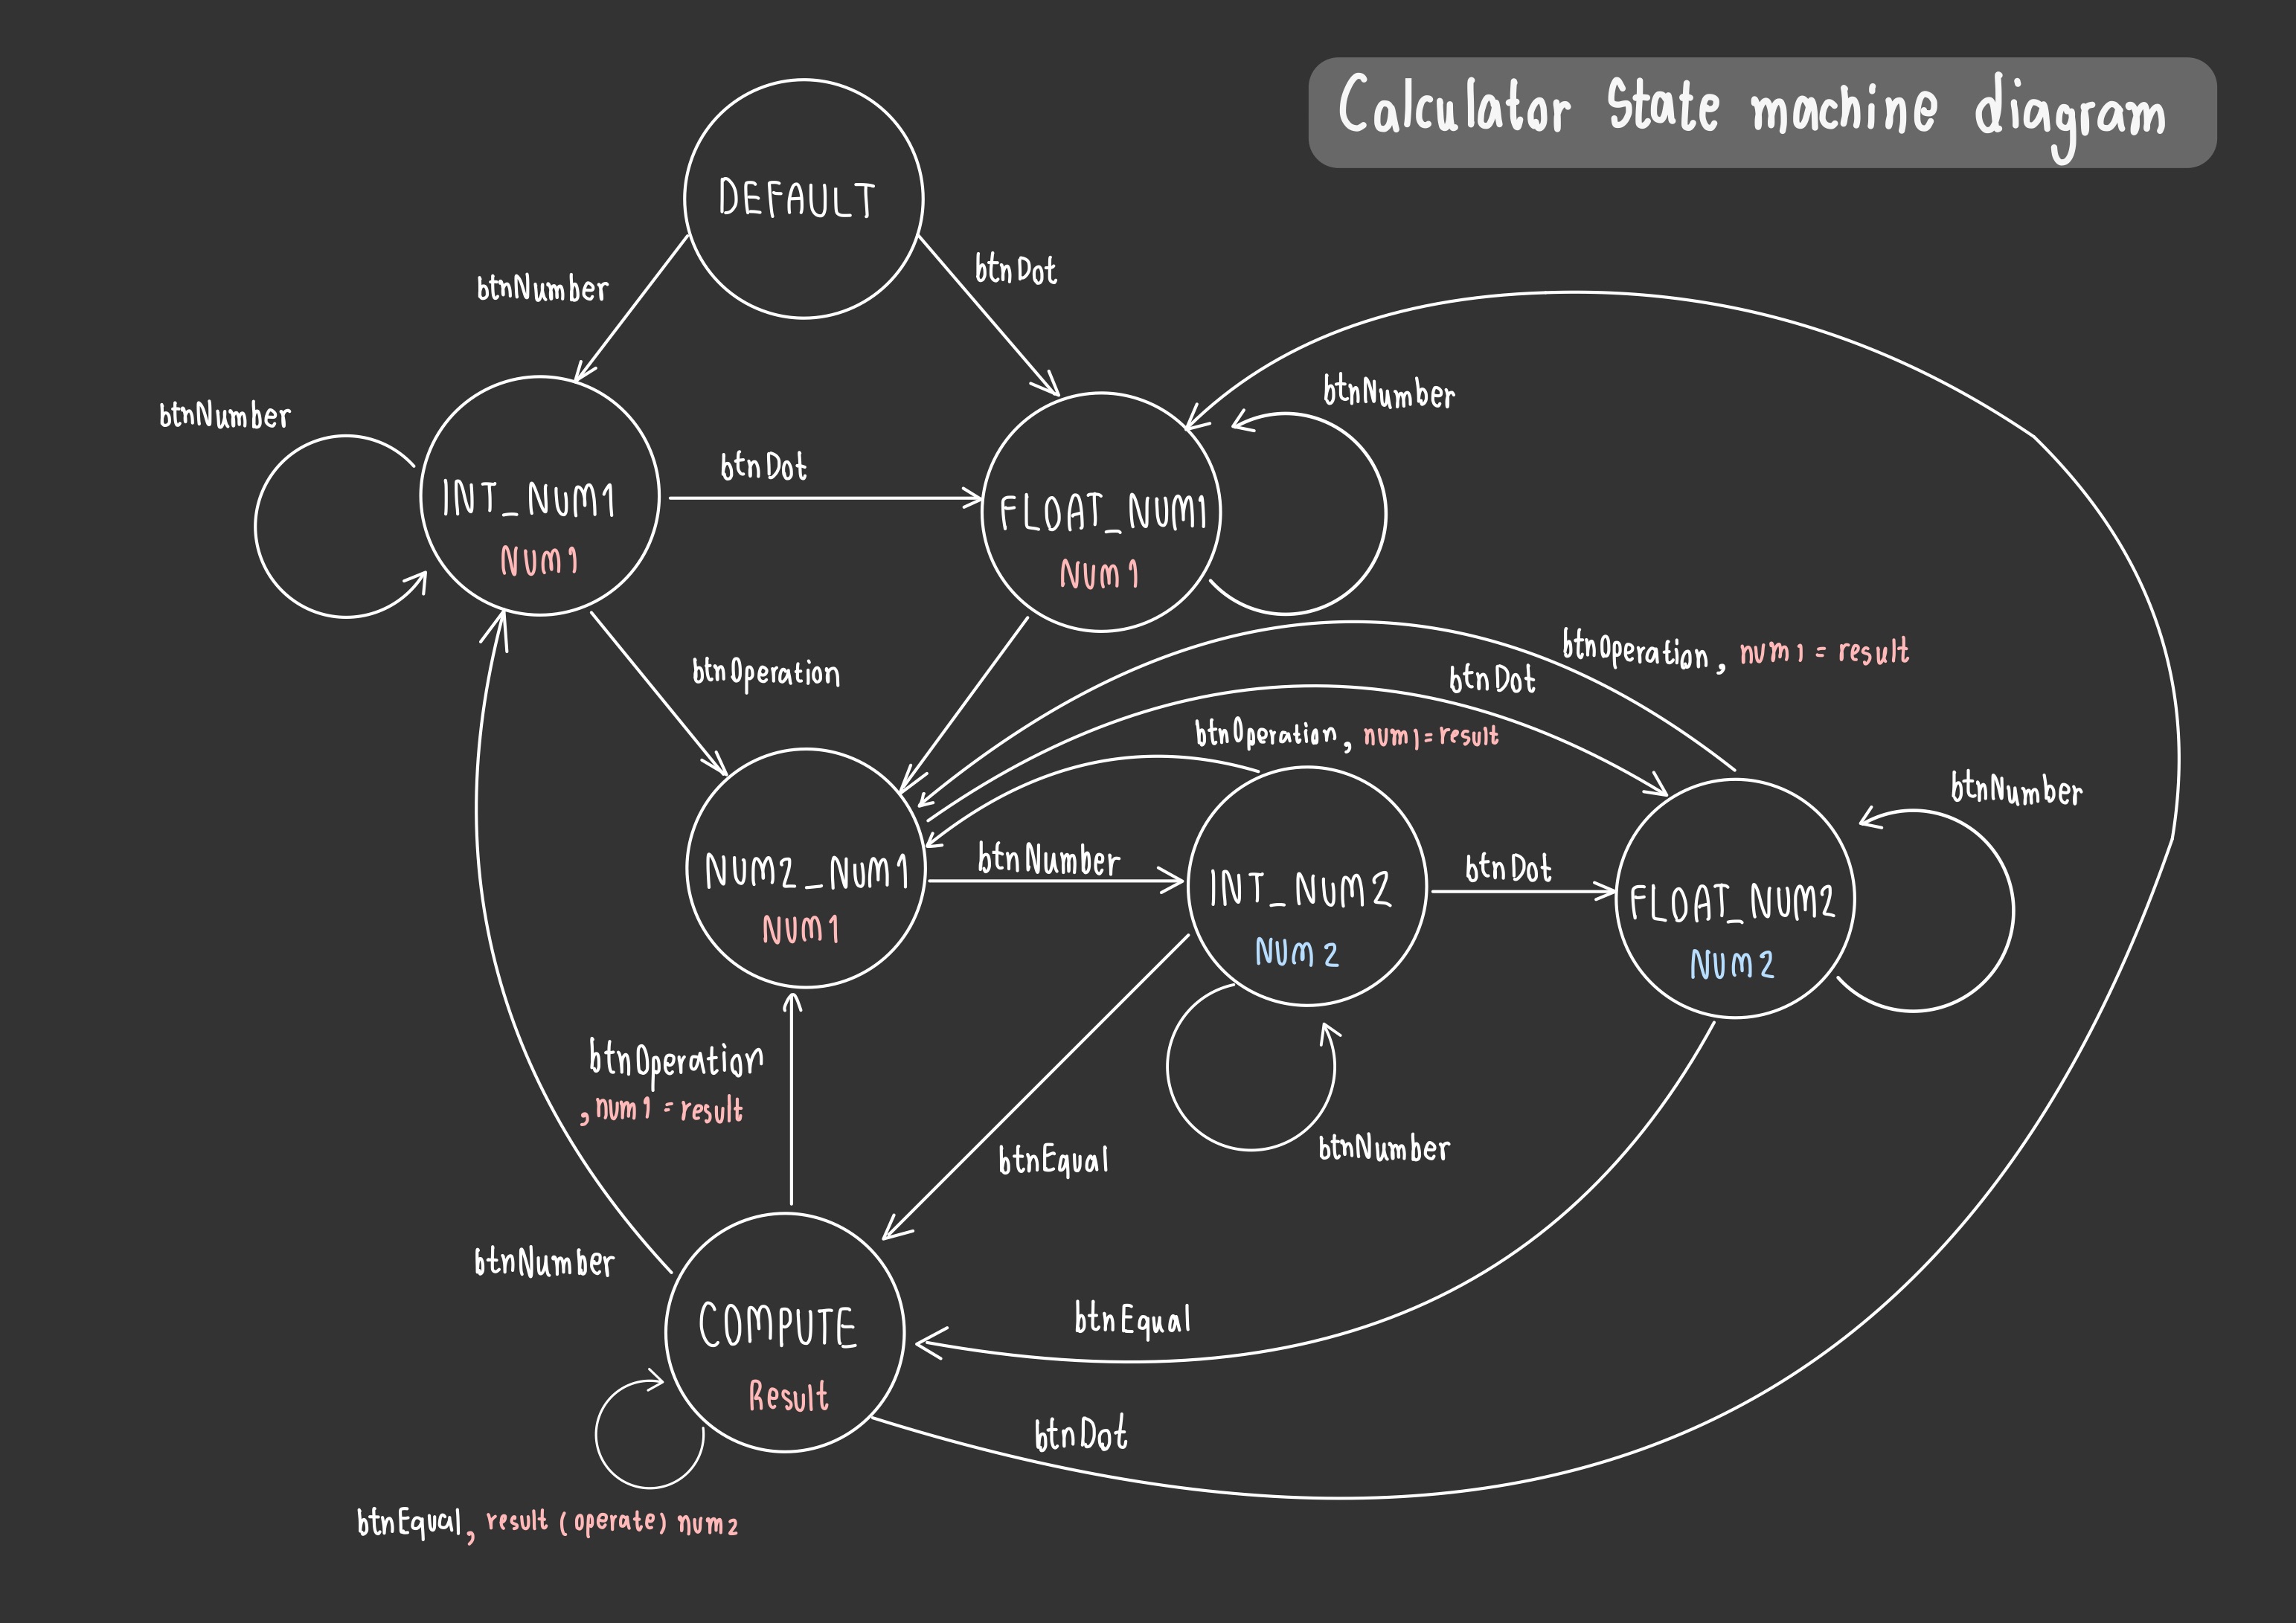 Calculator State machine diagram
DEFAULT
btnNumber
btnDot
btnNumber
btnNumber
INT_NUM1
NUM1
btnDot
FLOAT_NUM1
NUM1
btnOperation
btnOperation, num1 = result
btnDot
btnOperation, num1 = result
btnNumber
NUM2_NUM1
NUM1
btnNumber
INT_NUM2
NUM2
btnDot
FLOAT_NUM2
NUM2
btnOperation
, num1 = result
btnEqual
btnNumber
btnNumber
COMPUTE
Result
btnEqual
btnDot
btnEqual, result (operate) num2